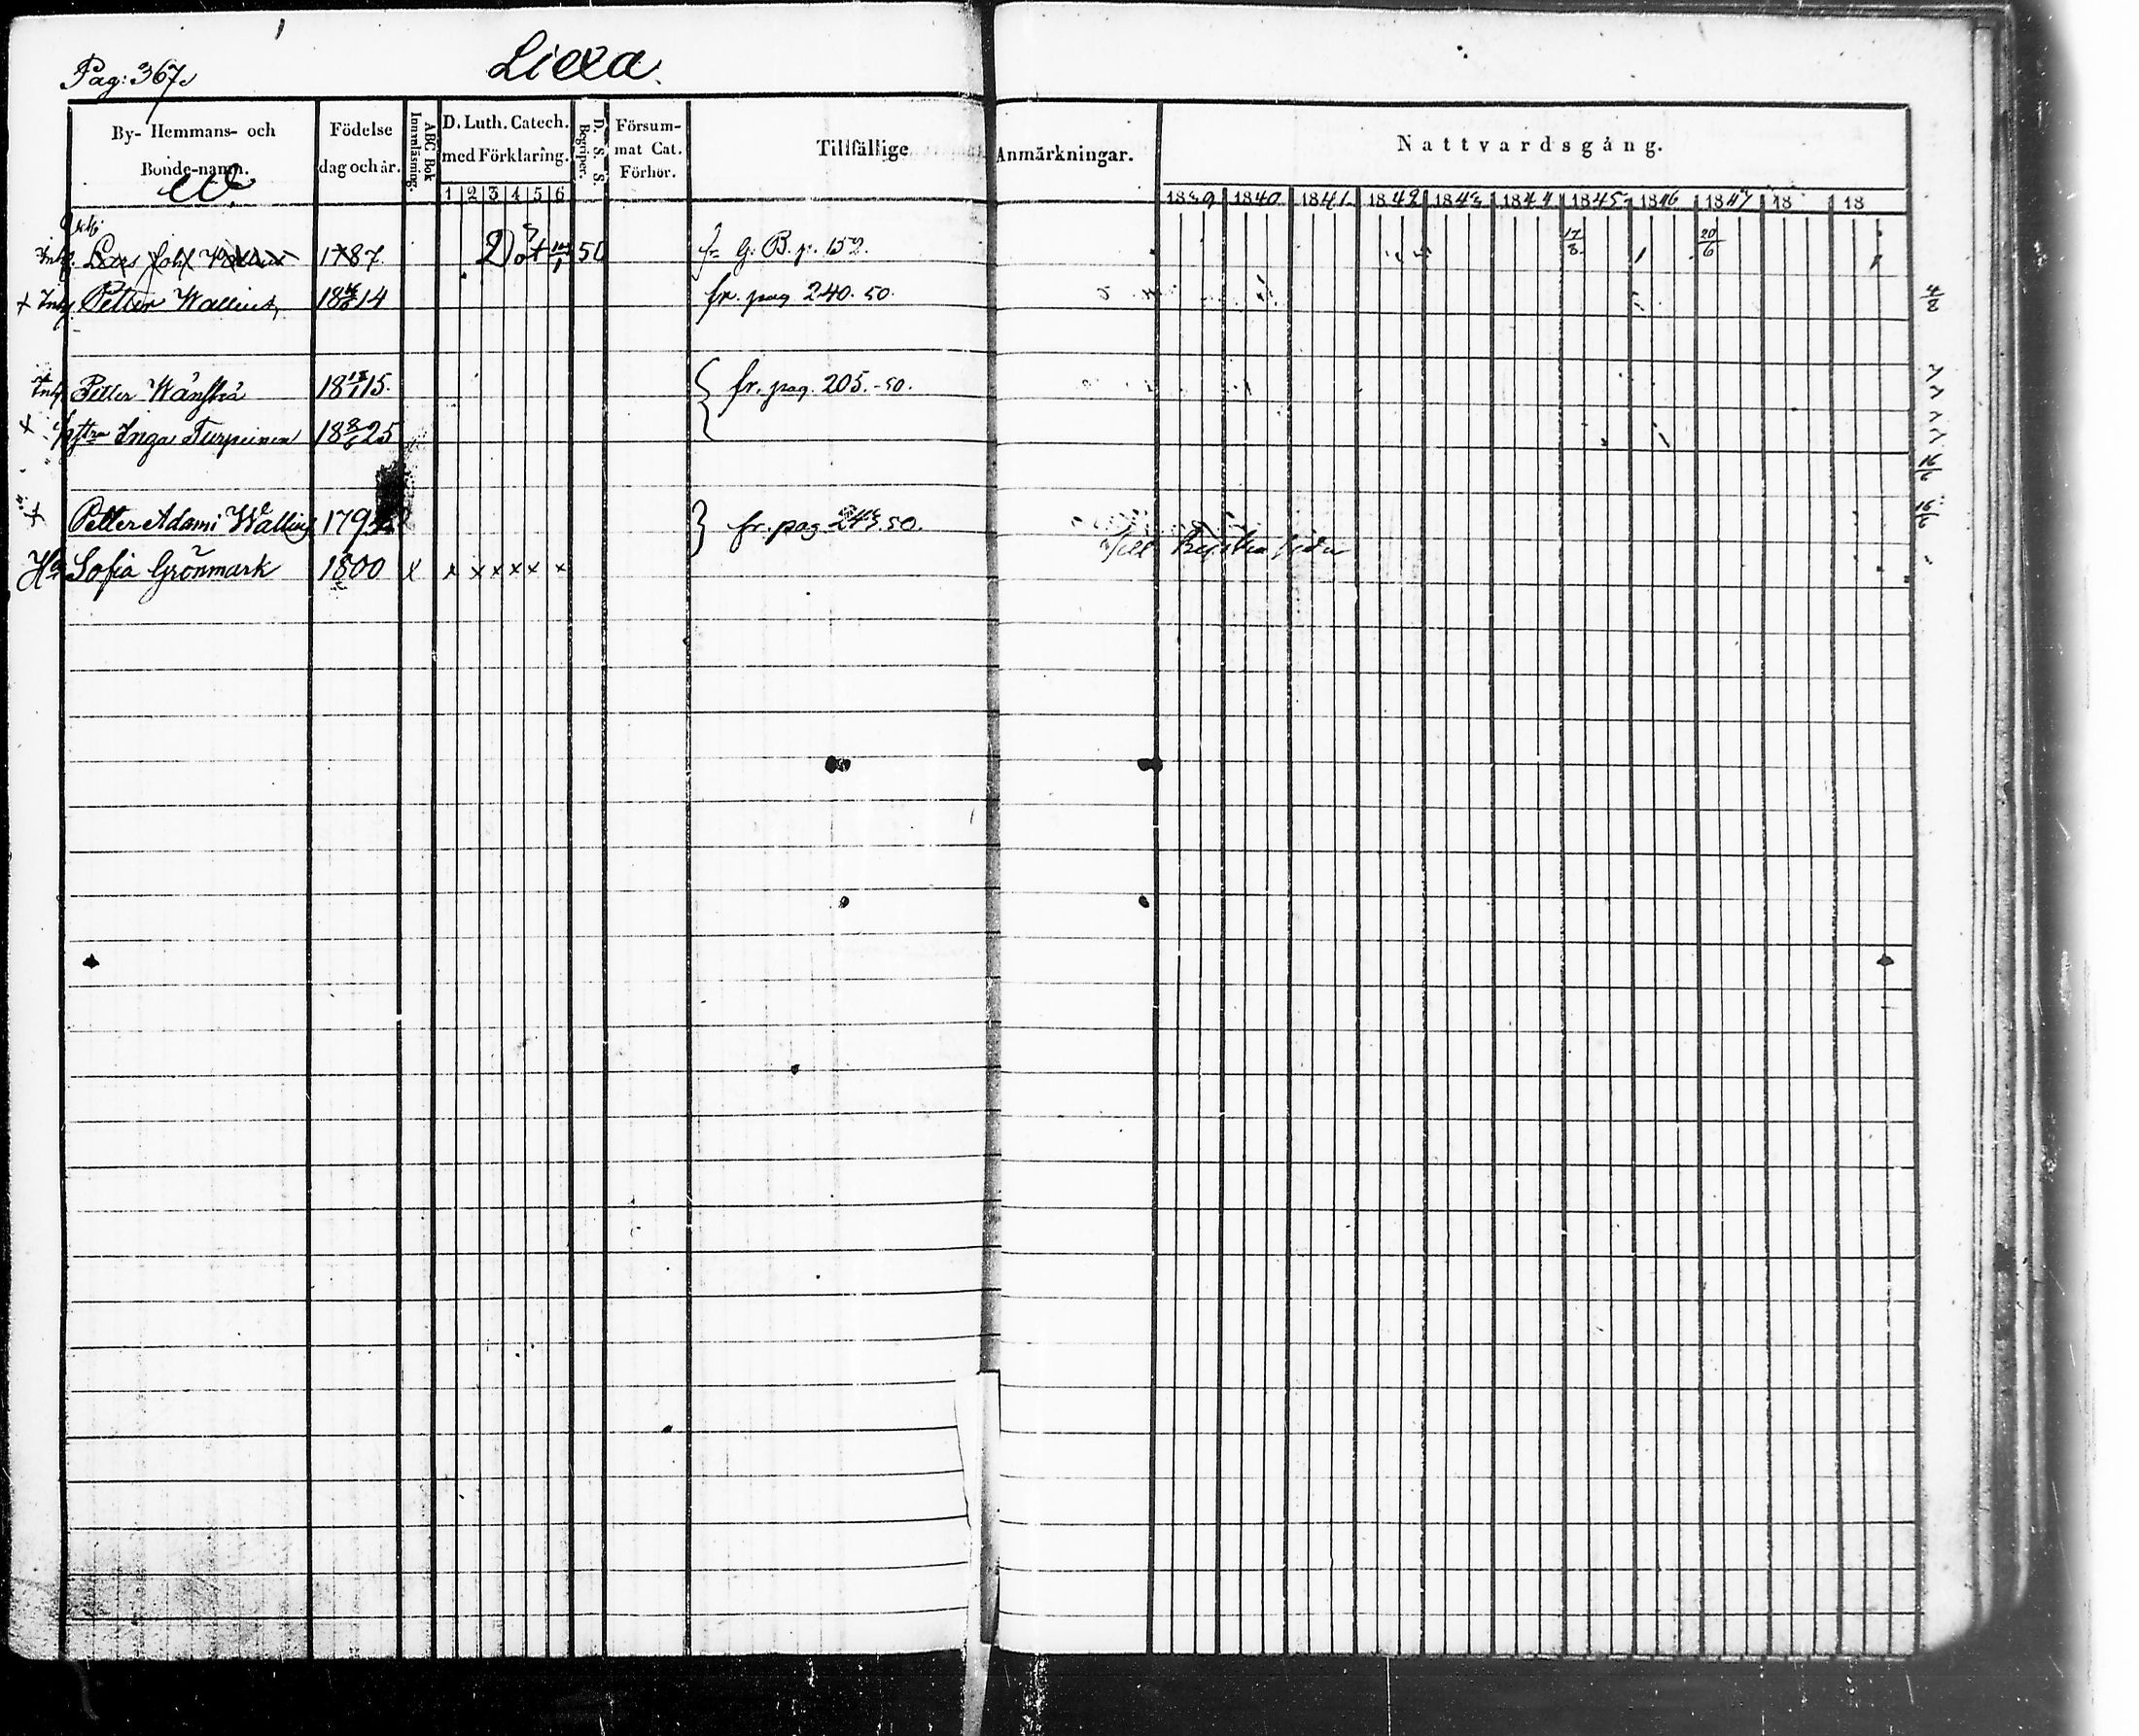 Pag: 367.
Liexa.
By- Hemmans- och Bonde-namn.
Födelse dag och år.
ABC Bok Innanläsning.
D. Luth. Catech. med Förklaring.
1 2 3 4 5 6
D. S. S. Begriper.
Försum- mat Cat. Förhör.
Tillfällige Anmärkningar.
Nattvardsgång.
W.
1839 1840 1841 1842 1843 1844 1845 1846 1847 18 18
Inh. Lars Joh 1787 50 fr G. B. p. 152. 17/8 20/6
+ Inh. Petter Wallius 1814 fr. pag 240. 50. 4/8
Inh. Petter Wänskä 1815 fr. pag. 205.-50.
+ Inga Turpeinen 1825
+ Petter Adami Wallius 179 fr. pag 50.
Till
Ha Sofia Grönmark 1800 x x x x x x x